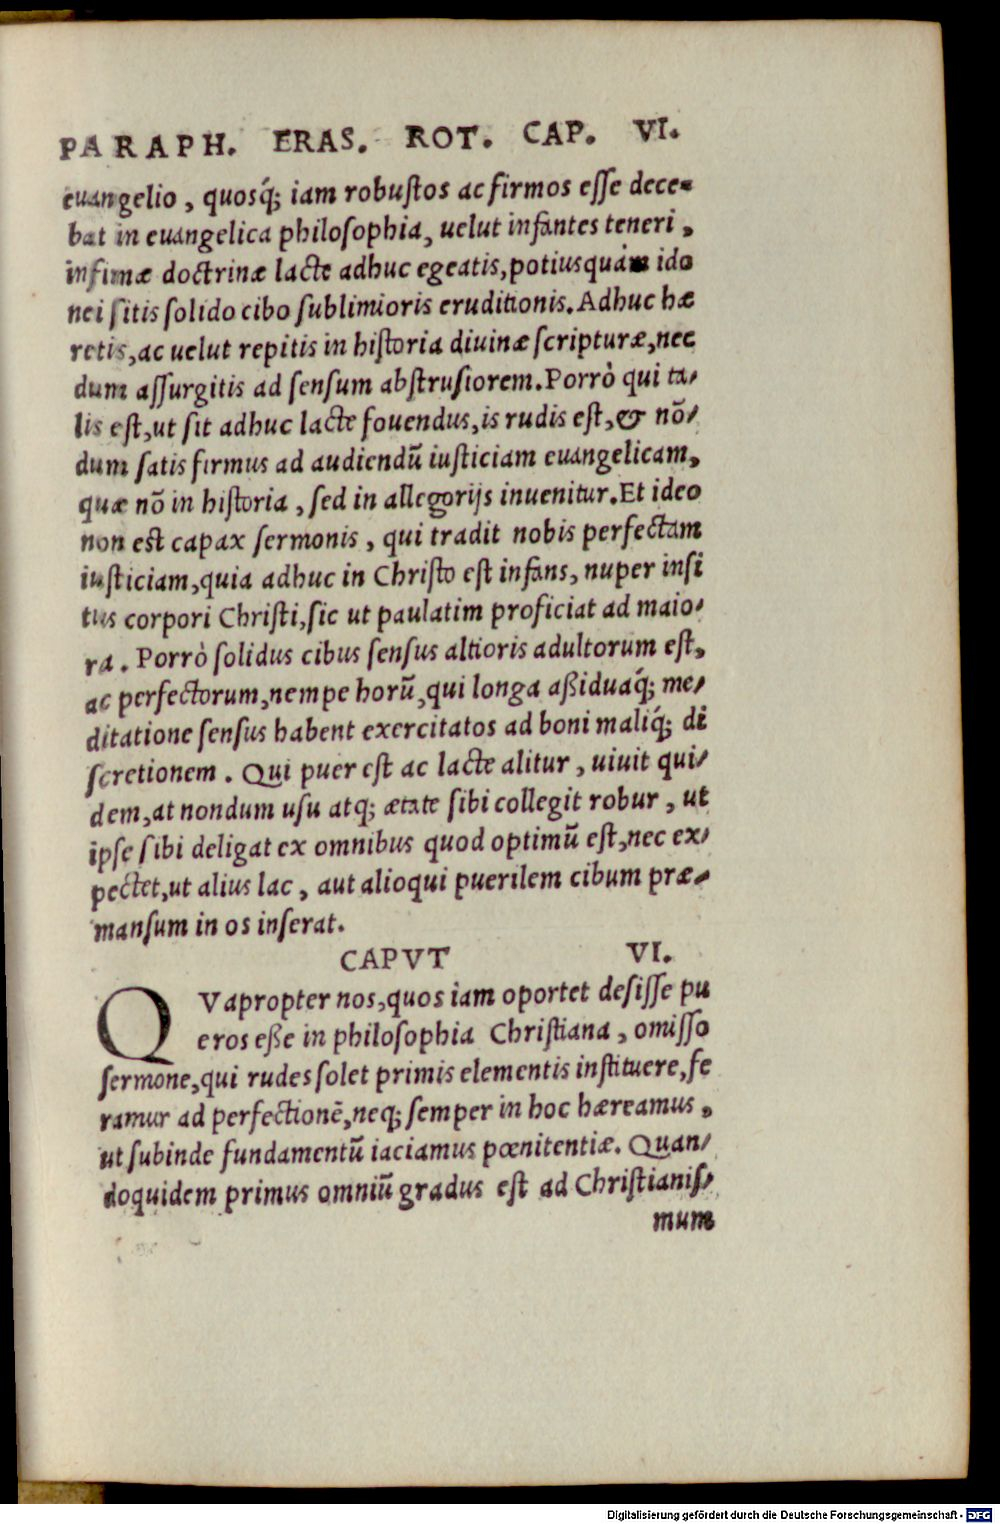 PARAPH. ERAS. ROT. CAP. VI.
euangelio, quosq́; iam robustos ac firmos esse dece-
bat in euangelica philosophia, uelut infantes teneri,
infimæ doctrinæ lacte adhuc egeatis, potiusquàm ido
nei sitis solido cibo sublimioris eruditionis. Adhuc hæ
retis, ac uelut repitis in historia diuinæ scripturæ, nec
dum assurgitis ad sensum abstrusiorem. Porrò qui ta-
lis est, ut sit adhuc lacte fouendus, is rudis est, & nō-
dum satis firmus ad audiendū iusticiam euangelicam,
quæ nō in historia, sed in allegorijs inuenitur. Et ideo
non est capax sermonis, qui tradit nobis perfectam
iusticiam, quia adhuc in Christo est infans, nuper insi
tus corpori Christi, sic ut paulatim proficiat ad maio-
ra. Porrò solidus cibus sensus altioris adultorum est,
ac perfectorum, nempe horū, qui longa aßiduaq́; me-
ditatione sensus habent exercitatos ad boni maliq́; di
scretionem. Qui puer est ac lacte alitur, uiuit qui-
dem, at nondum usu atq; ætate sibi collegit robur, ut
ipse sibi deligat ex omnibus quod optimū est, nec ex-
pectet, ut alius lac, aut alioqui puerilem cibum præ-
mansum in os inserat.
CAPVT VI.
QVapropter nos, quos iam oportet desisse pu
eros eße in philosophia Christiana, omisso
sermone, qui rudes solet primis elementis instituere, fe
ramur ad perfectionē, neq; semper in hoc hæreamus,
ut subinde fundamentū iaciamus pœnitentiæ. Quan-
doquidem primus omniū gradus est ad Christianis-
mum
Digitalisierung gefördert durch die Deutsche Forschungsgemeinschaft - DFG